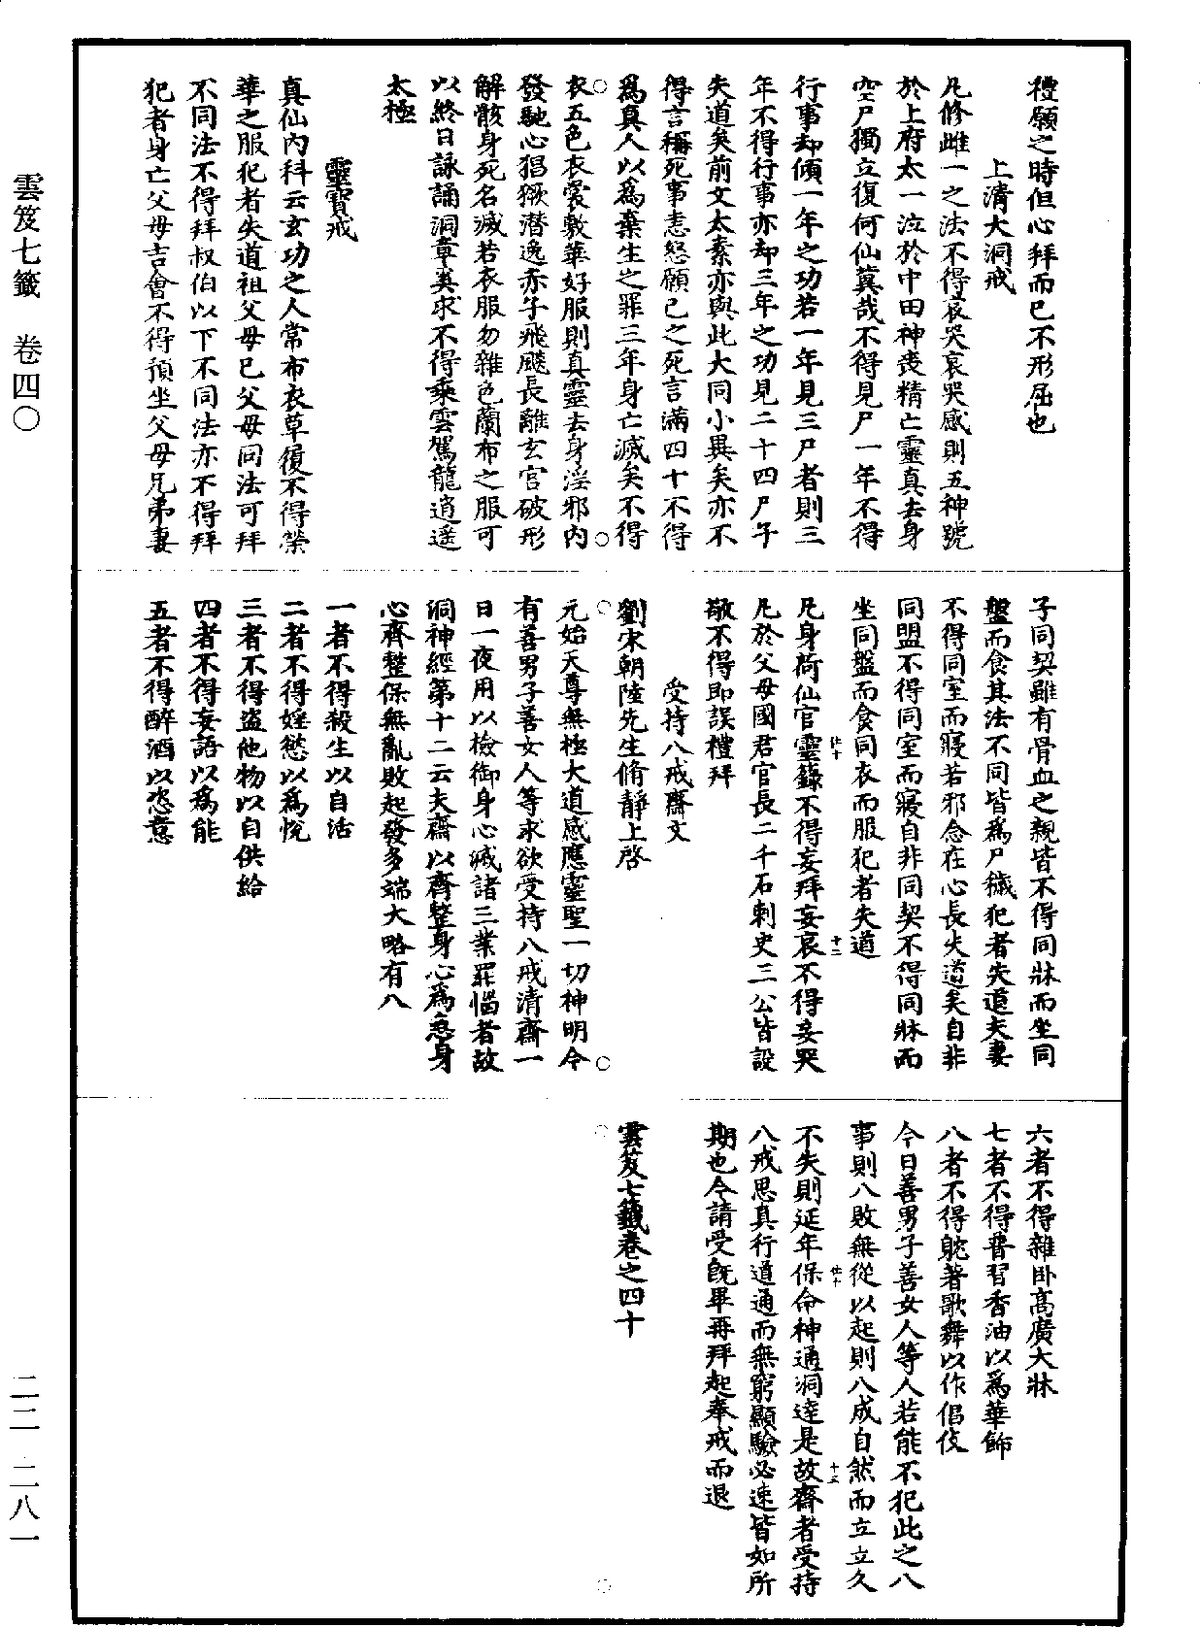 禮願之時但心拜而已不形屈也
上清大洞戒
凡修雌一之法不得哀哭哀哭感則五神號
於上府太一泣於中田神喪精亡靈真去身
空尸獨立復何仙冀哉不得見尸一年不得
行事却傾一年之功若一年見三尸者則三
年不得行事亦却三年之功見二十四尸子
失道矣前文太素亦與此大同小異矣亦不
得言稱死事恚怒願己之死言滿四十不得
爲真人以爲棄生之罪三年身亡滅矣不得
衣五色衣裳敷華好服則真靈去身淫邪內
發馳心猖獗潜逸赤子飛颷長離玄宮破形
解骸身死名滅若衣服勿雜色蘭布之服可
以終日詠誦洞章冀求不得乘雲駕龍逍遥
太極
靈寳戒
真仙內科云玄功之人常布衣草履不得榮
華之服犯者失道祖父母已父母同法可拜
不同法不得拜叔伯以下不同法亦不得拜
犯者身亡父母吉會不得預坐父母兄弟妻
子同契雖有骨血之親皆不得同牀而坐同
盤而食其法不同皆爲尸穢犯者失道夫妻
不得同室而寢若邪念在心長失道矣自非
同盟不得同室而寢自非同契不得同牀而
坐同盤而食同衣而服犯者失道
仕十
十二
凡身荷仙官靈籙不得妄拜妄哀不得妄哭
凡於父母國君官長二千石刺史三公皆設
敬不得即誤禮拜
受持八戒齋文
劉宋朝陸先生脩静上啓
元始天尊無極大道感應靈聖一切神明今
有善男子善女人等求欲受持八戒清齋一
日一夜用以檢御身心滅諸三業罪惱者故
洞神經第十二云夫齋以齊整身心爲急身
心齊整保無亂敗起發多端大略有八
一者不得殺生以自活
二者不得婬慾以爲悅
三者不得盜他物以自供給
四者不得妄語以爲能
五者不得醉酒以恣意
六者不得雜卧高廣大牀
七者不得普習香油以爲華飾
八者不得躭著歌舞以作倡伎
今日善男子善女人等人若能不犯此之八
事則八敗無從以起則八成自然而立立久
仕十
十三
不失則延年保命神通洞達是故齋者受持
八戒思真行道通而無窮顯驗必速皆如所
期也今請受既畢再拜起奉戒而退
雲笈七籤卷之四十
雲笈七籤　卷四〇
二二—二八一